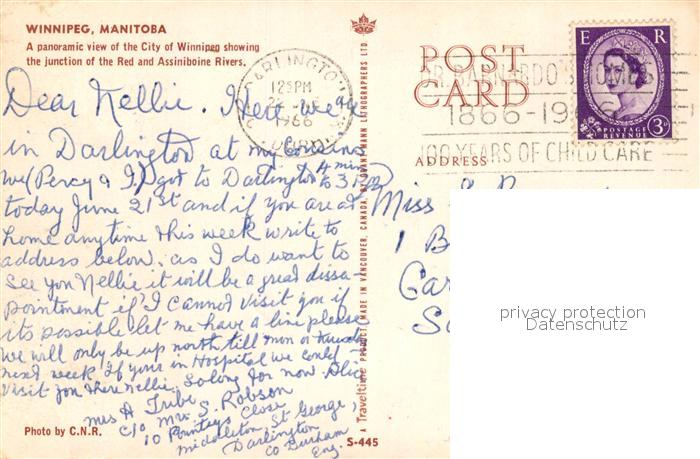 WINNIPEG, MANITOBA
A panoramic view of the City of Winnipeg showing
the junction of the Red and Assiniboine Rivers.
Dear Nellie. Here we are
in Darlington at my cousins
we (Percy & I) got to Darlington 4 min to 3 P.M.
today June 21st and if you are at
home anytime this week write to
address below. as I do want to
see you Nellie it will be a great dissa-
pointment if I cannot visit you if
its possible let me have a line please
we will only be up north till mon or
next week If your in Hospital we could
visit you there Nellie. so long for now
Mrs A Tribe
C/o Mrs S. Robson
10 Close
Middleton St George,
Darlington
Co Durham
Eng.
Photo by C.N.R.
S-445
A Traveltime PRODUCT MADE IN VANCOUVER, CANADA, BY GRANT-MANN LITHOGRAPHERS LTD.
DARLINGTON
12 15 PM
1966
DURHAM
POST
CARD
ADDRESS
DR. BARNARDO'S HOMES
1866-1966
100 YEARS OF CHILD CARE
E R
POSTAGE
REVENUE
3D
Miss
1 B
Car
privacy protection
Datenschutz